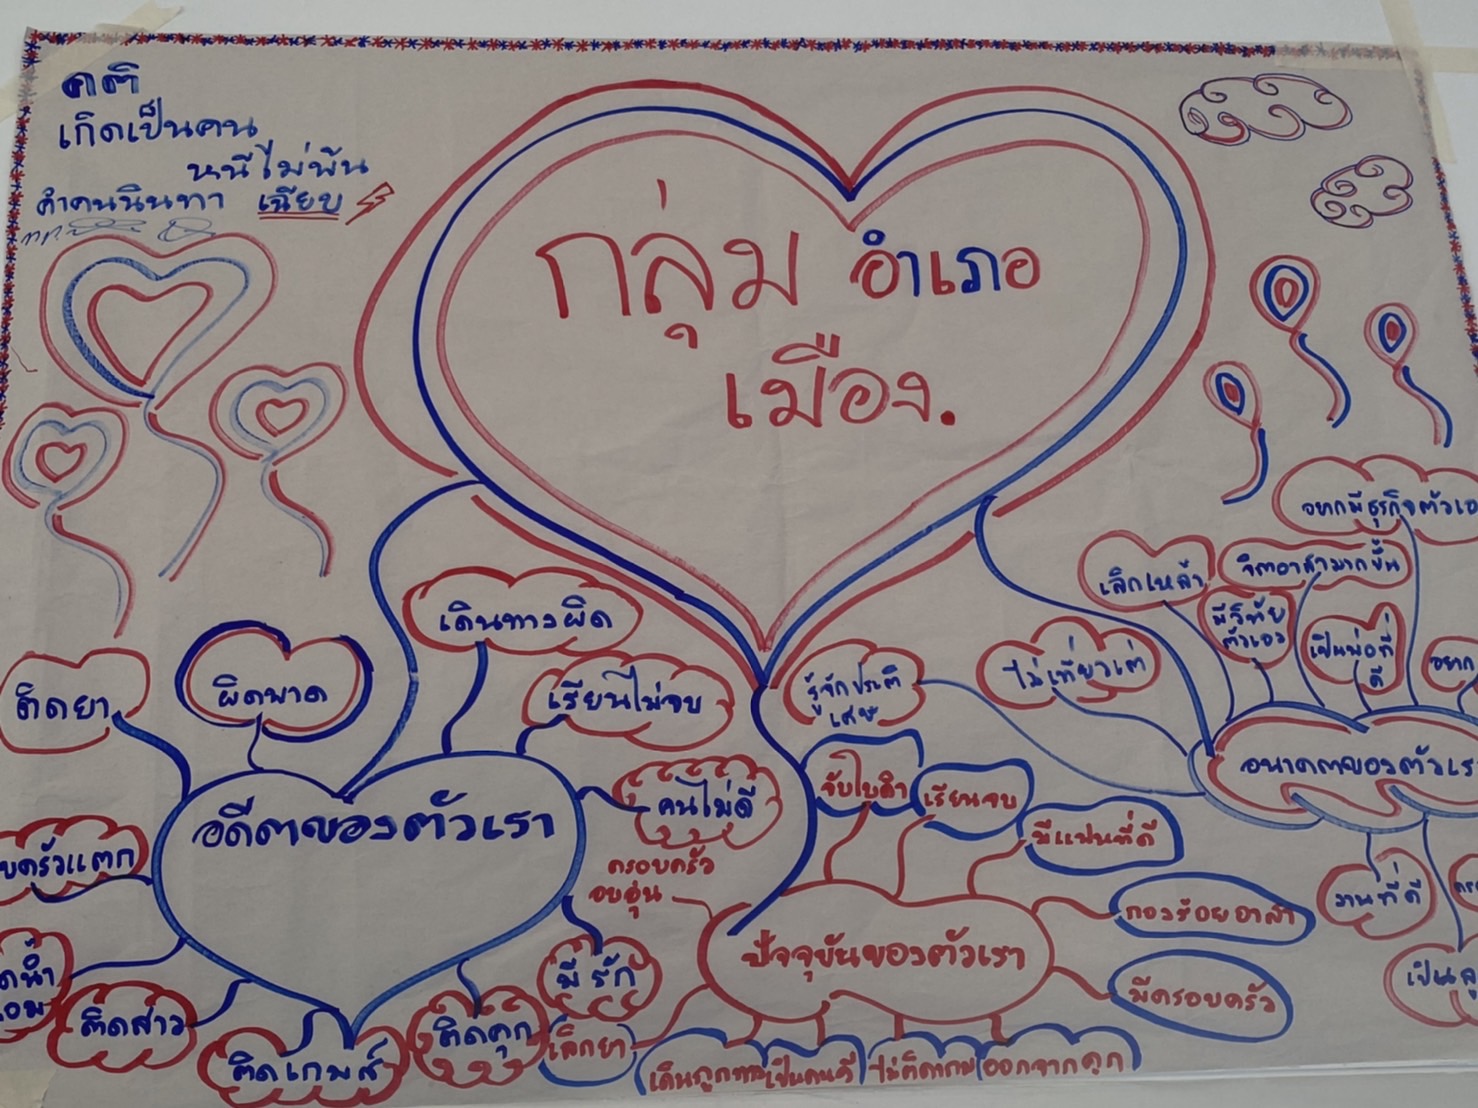 คติ
เกิดเป็นคน
หนีไม่พ้น
คำคนนินทา เฉียบ
กลุ่ม อำเภอ
เมือง.
เดินทางผิด
เรียนไม่จบ
ติดยา
ผิดพาด
อดีตของตัวเรา
คนไม่ดี
บครัวแตก
ติดสาว
ติดเกมส์
ติดคุก
มีรัก
ครอบครัว
อบอุ่น
ปัจจุบันของตัวเรา
รู้จักประติ
เสธ
จับใบดำ
เรียนจบ
มีแฟนที่ดี
กองร้อยอาสา
มีครอบครัว
เลิกยา
เดินถูกทาง
เป็นคนดี
ไม่ติดเกม
ออกจากคุก
อยากมีธุรกิจตัวเอ
เลิกเหล้า
จิตอาสามากขึ้น
มีวินัย
ตัวเอง
เป็นพ่อที่
ดี
อยาก
ไม่เที่ยวเต่
อนาคตของตัวเรา
งานที่ดี
เป็นลู